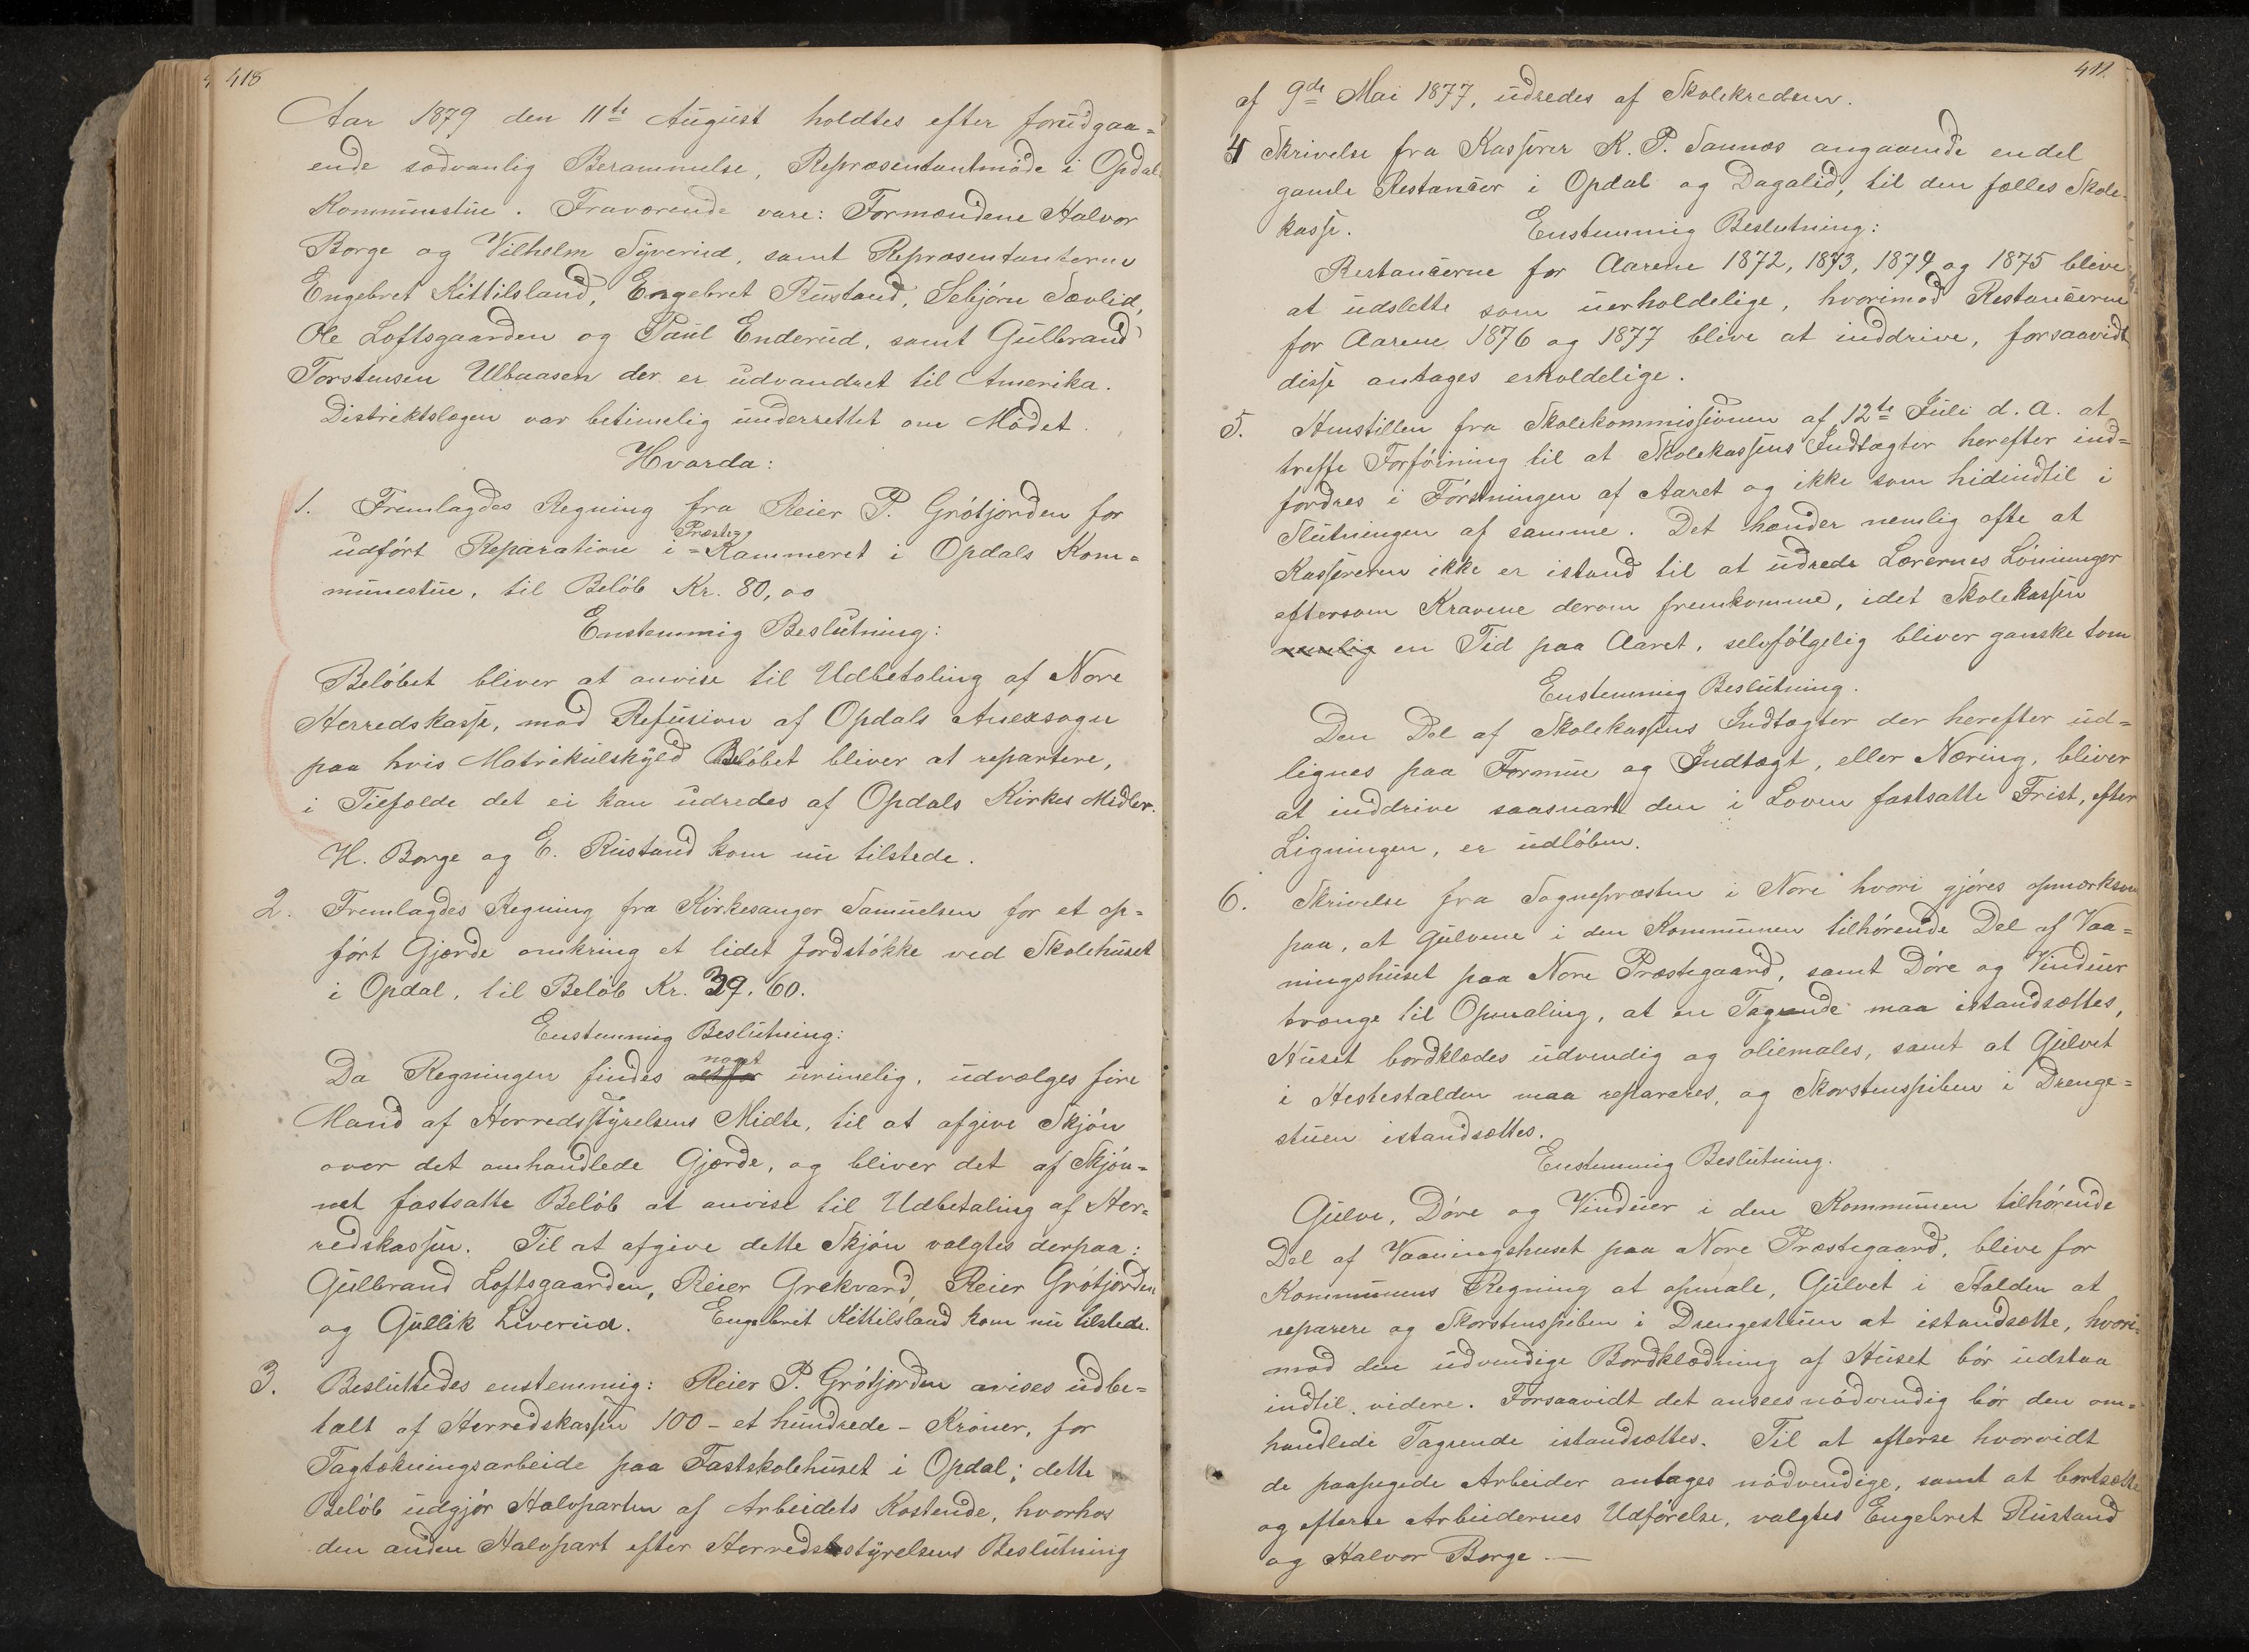 418
Aar 1879 den 11te August holdtes efter forudgaa=
ende sædvanlig Berammelse, Repræsentantmøde i Opdals
Kommunestue. Fraværende vare: Formændene Halvor
Borge og Vilhelm Tyverud, samt Repræsentanterne
Engebret Kittilsland, Engebret Rustand, Sebjørn Sævlid,
Ole Loftsgaarden og Paul Enderud, samt Gulbrand
Torstensen Ulbaasen der er udvandret til Amerika.
Distriktslægen var betimelig underrettet om Mødet.
Hvorda:
1. Fremlagdes Regning fra Reier P. Grótjorden for
udført Reparation i Præste=Kammeret i Opdals Kom=
munestue, til Beløb Kr. 80,00
Enstemmig Beslutning:
Beløbet bliver at anvise til Udbetaling af Nore
Herredskasse, mod Refusion af Opdals Anexsogn
paa hvis Matrikulskyld Beløbet bliver at repartere,
i Tilfælde det ei kan udredes af Opdals Kirkes Midler.
H. Borge og E. Rustand kom nu tilstede.
2. Fremlagdes Regning fra Kirkesanger Samuelsen for et op=
ført Gjærde omkring et lidet Jordstøkke ved Skolehuset
i Opdal, til Beløb Kr. 39.60.
Enstemmig Beslutning:
Da Regningen findes altfor noget urimelig, udvælges fire
Mand af Herredsstyrelsens Midte, til at afgive Skjøn
over det omhandlede Gjærde, og bliver det af Skjøn=
net fastsatte Beløb at anvise til Udbetaling af Her=
redskassen. Til at afgive dette Skjøn valgtes derpaa:
Gulbrand Loftsgaarden, Reier Grekvard, Reier Grótjorden
og Gullik Liverud. Engebret Kittilsland kom nu tilstede.
3. Besluttedes enstemmig: Reier P. Grótjorden avises udbe=
talt af Herredskassen 100 - et hundrede - Kroner, for
Tagtækningsarbeide paa Fastskolehuset i Opdal; dette
Beløb udgjør Halvparten af Arbeidets Kostende, hvorhos
den anden Halvpart efter Herredsbestyrelsens Beslutning
411.
af 9de Mai 1877, udredes af Skolekredsen.
4 Skrivelse fra Kasserer K. P. Sannæs angaaende endel
gamle Restancer i Opdal og Dagalid, til den fælles Skole=
kasse. Enstemmig Beslutning:
Restancerne for Aarene 1872, 1873, 1874 og 1875 blive
at udslette som uerholdelige, hvorimod Restancerne
for Aarene 1876 og 1877 blive at inddrive, forsaavidt
disse antages erholdelige.
5. Henstillen fra Skolekommissionen af 12te Juli d. A. at
treffe Forføining til at Skolekassens Indtægter herefter ind=
fordres i Førstningen af Aaret og ikke som hidindtil i
Slutningen af samme. Det hænder nemlig ofte at
Kassereren ikke er istand til at udrede Lærernes Lønninger
eftersom Kravene derom fremkomme, idet Skolekassen
nemlig en Tid paa Aaret, selvfølgelig bliver ganske tom
Enstemmig Beslutning.
Den Del af Skolekassens Indtægter der herefter ud=
lignes paa Formue og Indtægt, eller Næring, bliver
at inddrive saasnart den i Loven fastsatte Frist, efter
Ligningen, er udløben.
6. Skrivelse fra Sognepræsten i Nore hvori gjøres opmærksom
paa, at Gulvene i den Kommunen tilhørende Del af Vaa=
ningshuset paa Nore Præstegaard, samt Døre og Vinduer
trænge til Opmaling, at en Tagrende maa istandsættes,
Huset bordklædes udvendig og oliemales, samt at Gulvet
i Hestestalden maa repareres, og Skorstenspiben i Drenge=
stuen istandsættes.
Enstemmig Beslutning.
Gulve, Døre og Vinduer i den Kommunen tilhørende
Del af Vaaningshuset paa Nore Præstegaard, blive for
Kommunens Regning at opmale, Gulvet i Stalden at
reparere og Skorstenspiben i Drengestuen at istandsætte, hvori=
mod den udvendige Bordklædning af Huset bør udstaa
indtil videre. Forsaavidt det ansees nødvendig bør den om=
handlede Tagrende istandsættes. Til at efterse hvorvidt
de paapegede Arbeider antages nødvendige, samt at bortsætte
og efterse Arbeidernes Udførelse, valgtes Engebret Rustand
og Halvor Borge.—